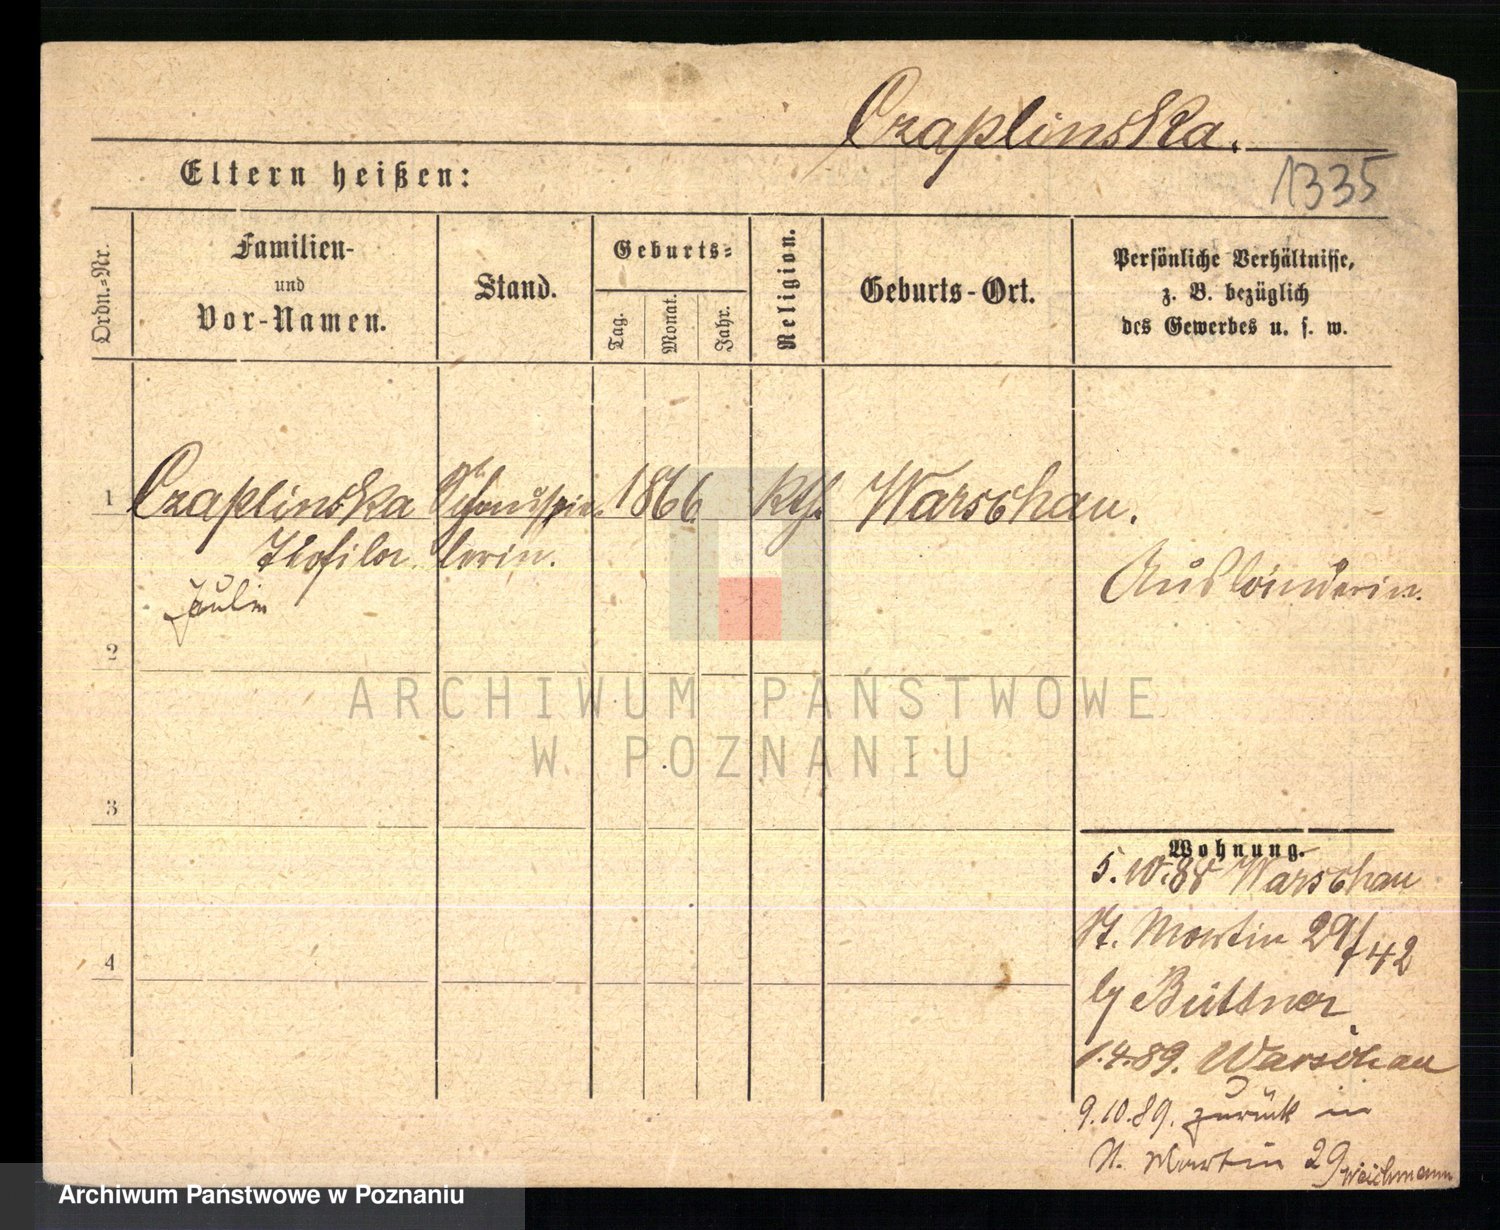 Czaplinska.
1335
Eltern heißen:
Ordn.-Nr.
Familien-
und
Vor-Namen.
Stand.
Geburts-
Tag.
Monat.
Jahr.
Religion.
Geburts-Ort.
Persönliche Verhältnisse,
z. B. bezüglich
des Gewerbes u. s. w.
1 Czaplinska Schauspie- 1866 kth. Warschau.
Teofila lerin.
Ausländerin.
2
3
4
ARCHIWUM PAŃSTWOWE
W POZNANIU
Wohnung.
5.10.88 Warschau
St. Martin 29/42
Büttner
1.4.89. Warschau
9.10.89. zurück in
St. Martin 29 Weichmann
Archiwum Państwowe w Poznaniu